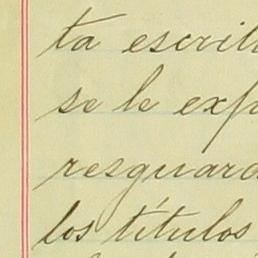 ta escrit
se le exp
resguard
los títulos